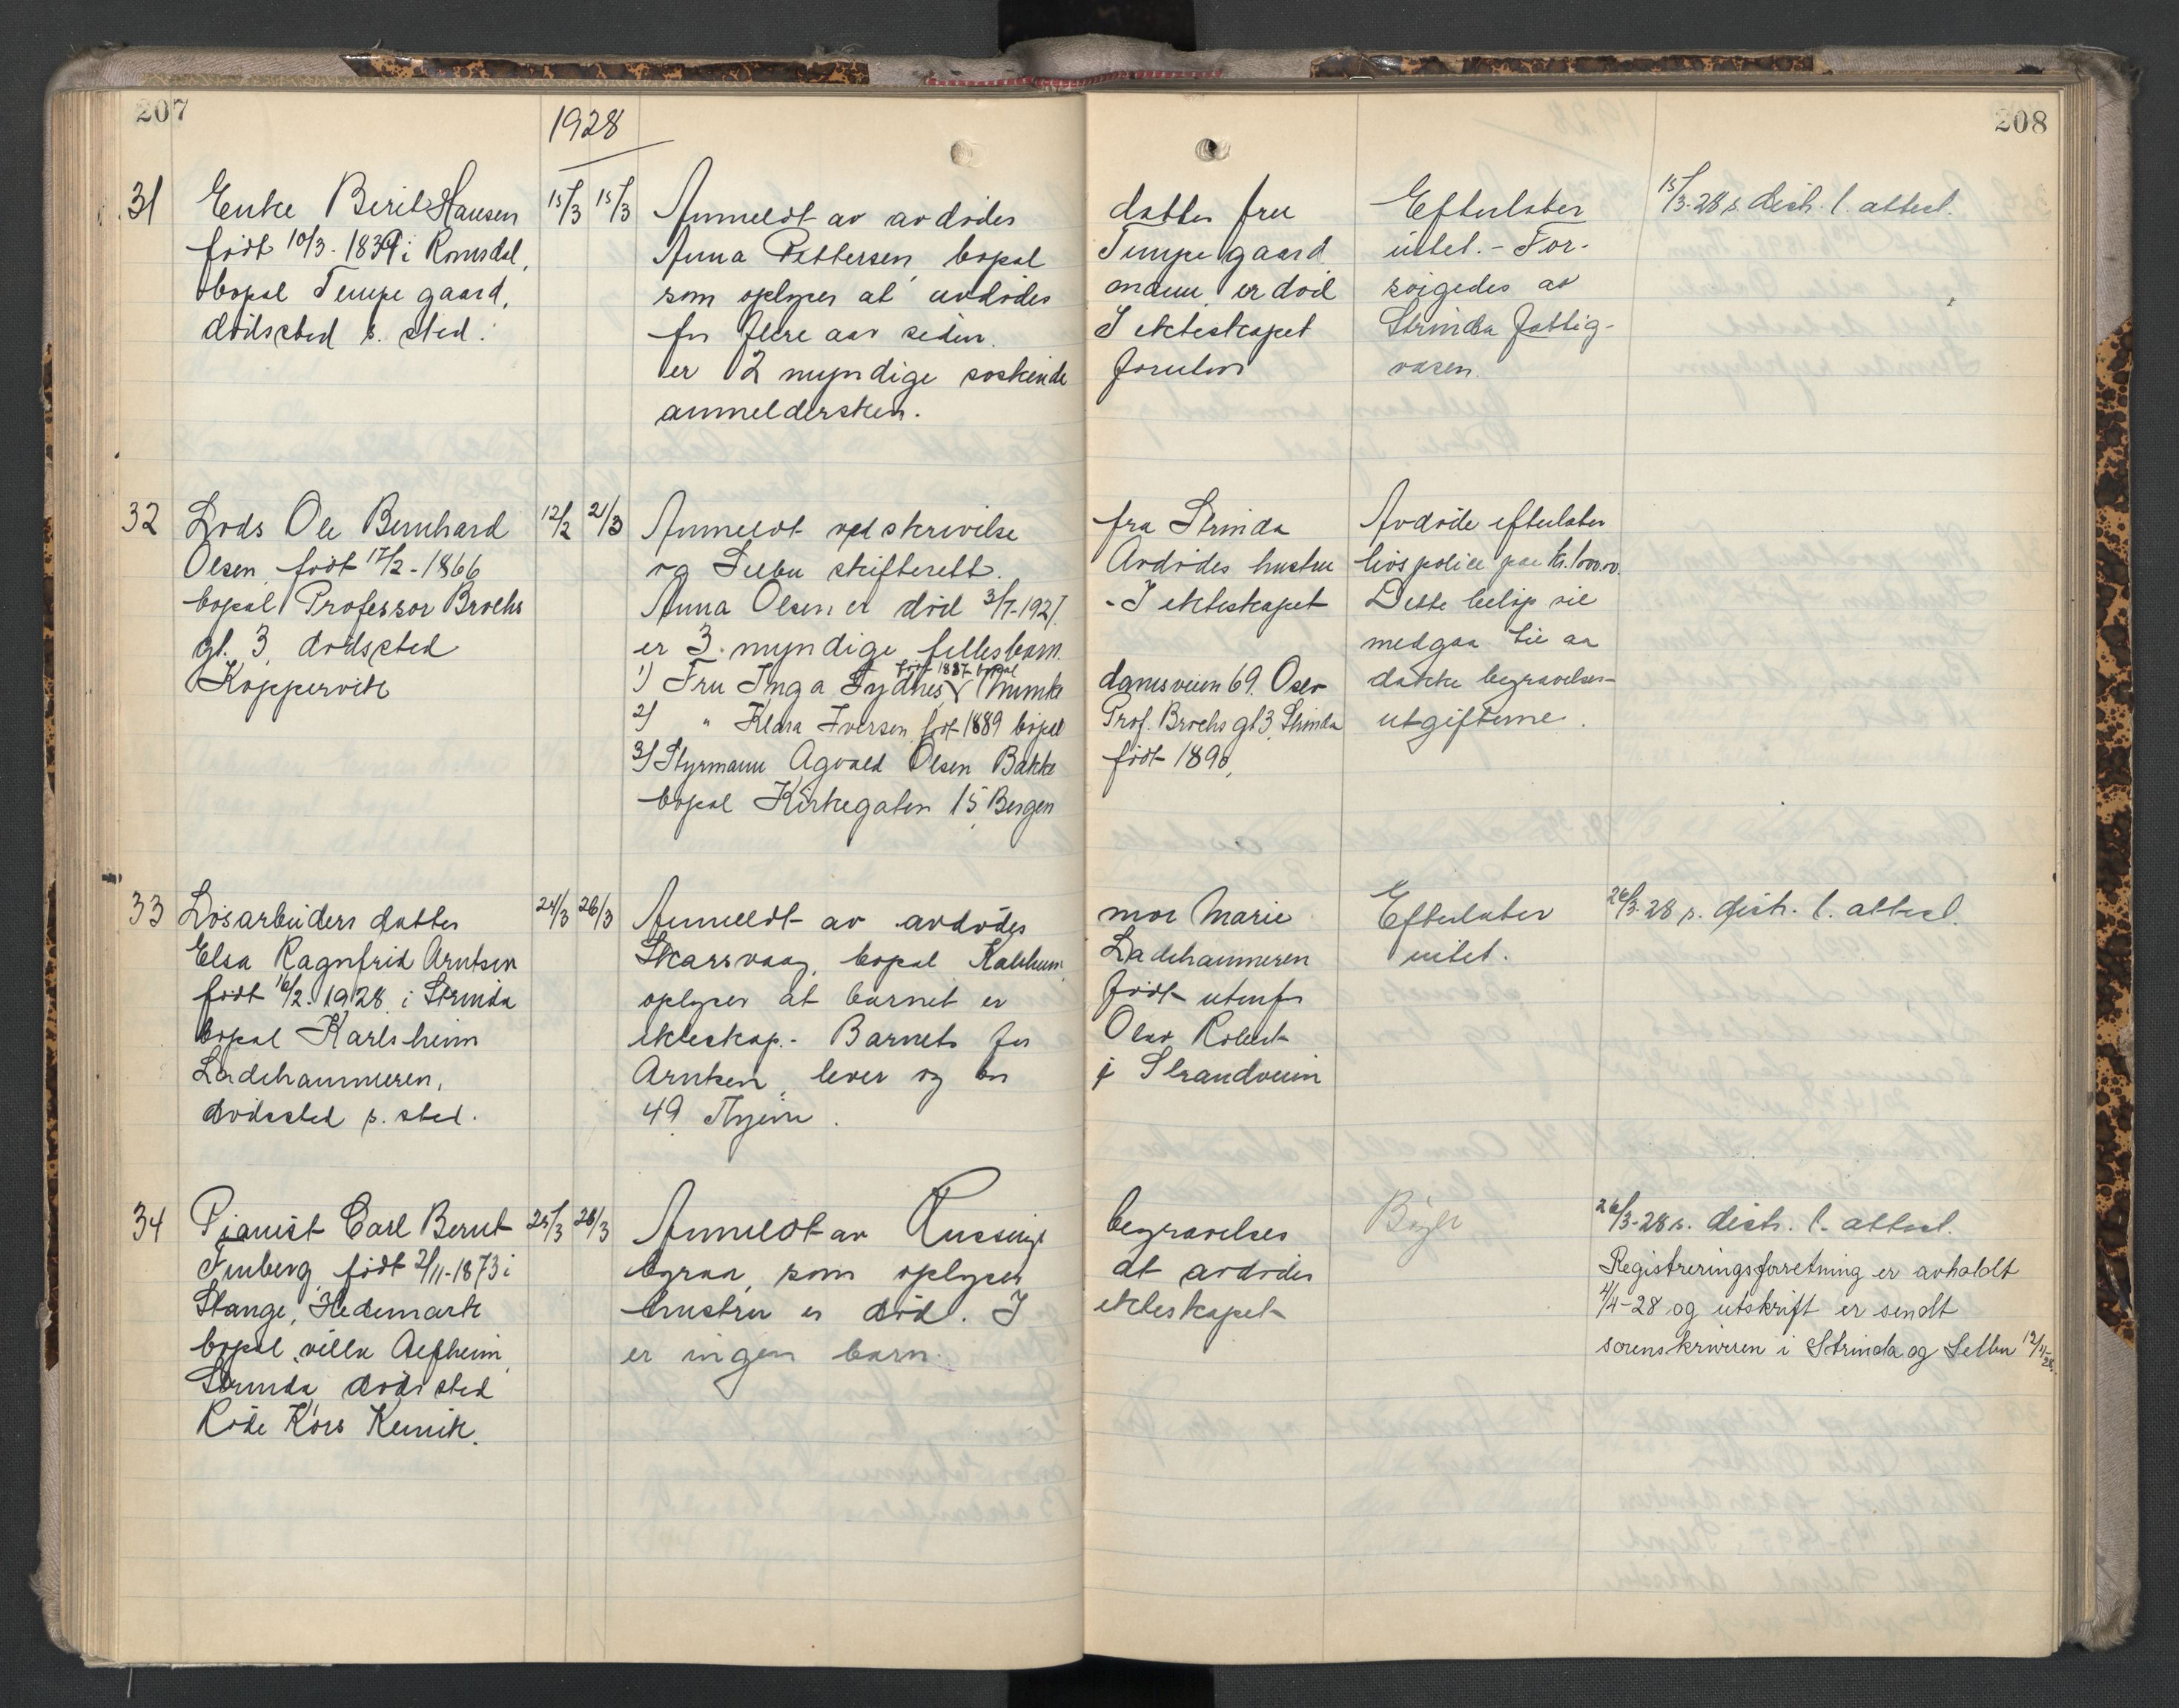 207
1928
208
31
Enke Berit Hansen
født 10/3-1839 i Romsdal,
bopal Tempe gaard,
dødssted s. sted.
15/3 15/3
Anmeldt av avdødes
Anna Pettersen, bopal
som oplyser at avdødes
for flere aar siden.
er 2 myndige søskende
anmeldersken.
datter fru
Tempe gaard
mann er død
I ekteskapet
foruten
Efterlater
intet. - For-
sørgedes av
Strinda fattig-
væsen.
15/3-28 s. distr. l. attest.
32
Lods Ole Bernhard
Olsen, født 17/2-1866
bopal Professor Brochs
gt. 3, dødssted
Koppervik
12/2 21/3
Anmeldt ved skrivelse
og Selbu skifterett.
Anna Olsen er død 3/7-1927.
er 3 myndige fellesbarn.
født 1887 bopal
1) Fru Inga Sydnes, Munke
2) " Klara Iversen født 1889 bopal
3) Styrmann Agvald Olsen Bakke
bopal Kirkegaten 15 Bergen
fra Strinda
Avdødes hustru
- I ekteskapet
damsveien 69. Oslo
Prof. Brochs gt 3, Strinda
født 1890,
Avdøde efterlater
livspolice paa kr. 1000.00.
Dette beløp vil
medgaa til aa
dække begravelses-
utgifterne.
33
Løsarbeiders datter
Elsa Ragnfrid Arntsen
født 16/2-1928 i Strinda
bopal Karlsheim
Ladehammeren,
dødssted s. sted.
24/3 26/3
Anmeldt av avdødes
Skarsvaag, bopal Kalsheim
oplyser at barnet er
ekteskap. - Barnets far
Arntsen, lever og bor
49 Thjem.
mor Marie
Ladehammeren
født utenfor
Olav Robert
i Strandveien
Efterlater
intet.
26/3-28 s. distr. l. attest.
34
Pianist Carl Bernt
Finberg, født 2/11-1873 i
Stange, Hedemark
bopal villa Alfheim,
Strinda, dødssted
Røde Kors Klinik.
25/3 26/3
Anmeldt av
byraa, som oplyser
hustru er død. I
er ingen barn.
begravelses
at avdødes
ekteskapet
26/3-28 s. distr. l. attest.
Registreringsforretning er avholdt
4/4-28 og utskrift er sendt
sorenskriveren i Strinda og Selbu 12/4-28.